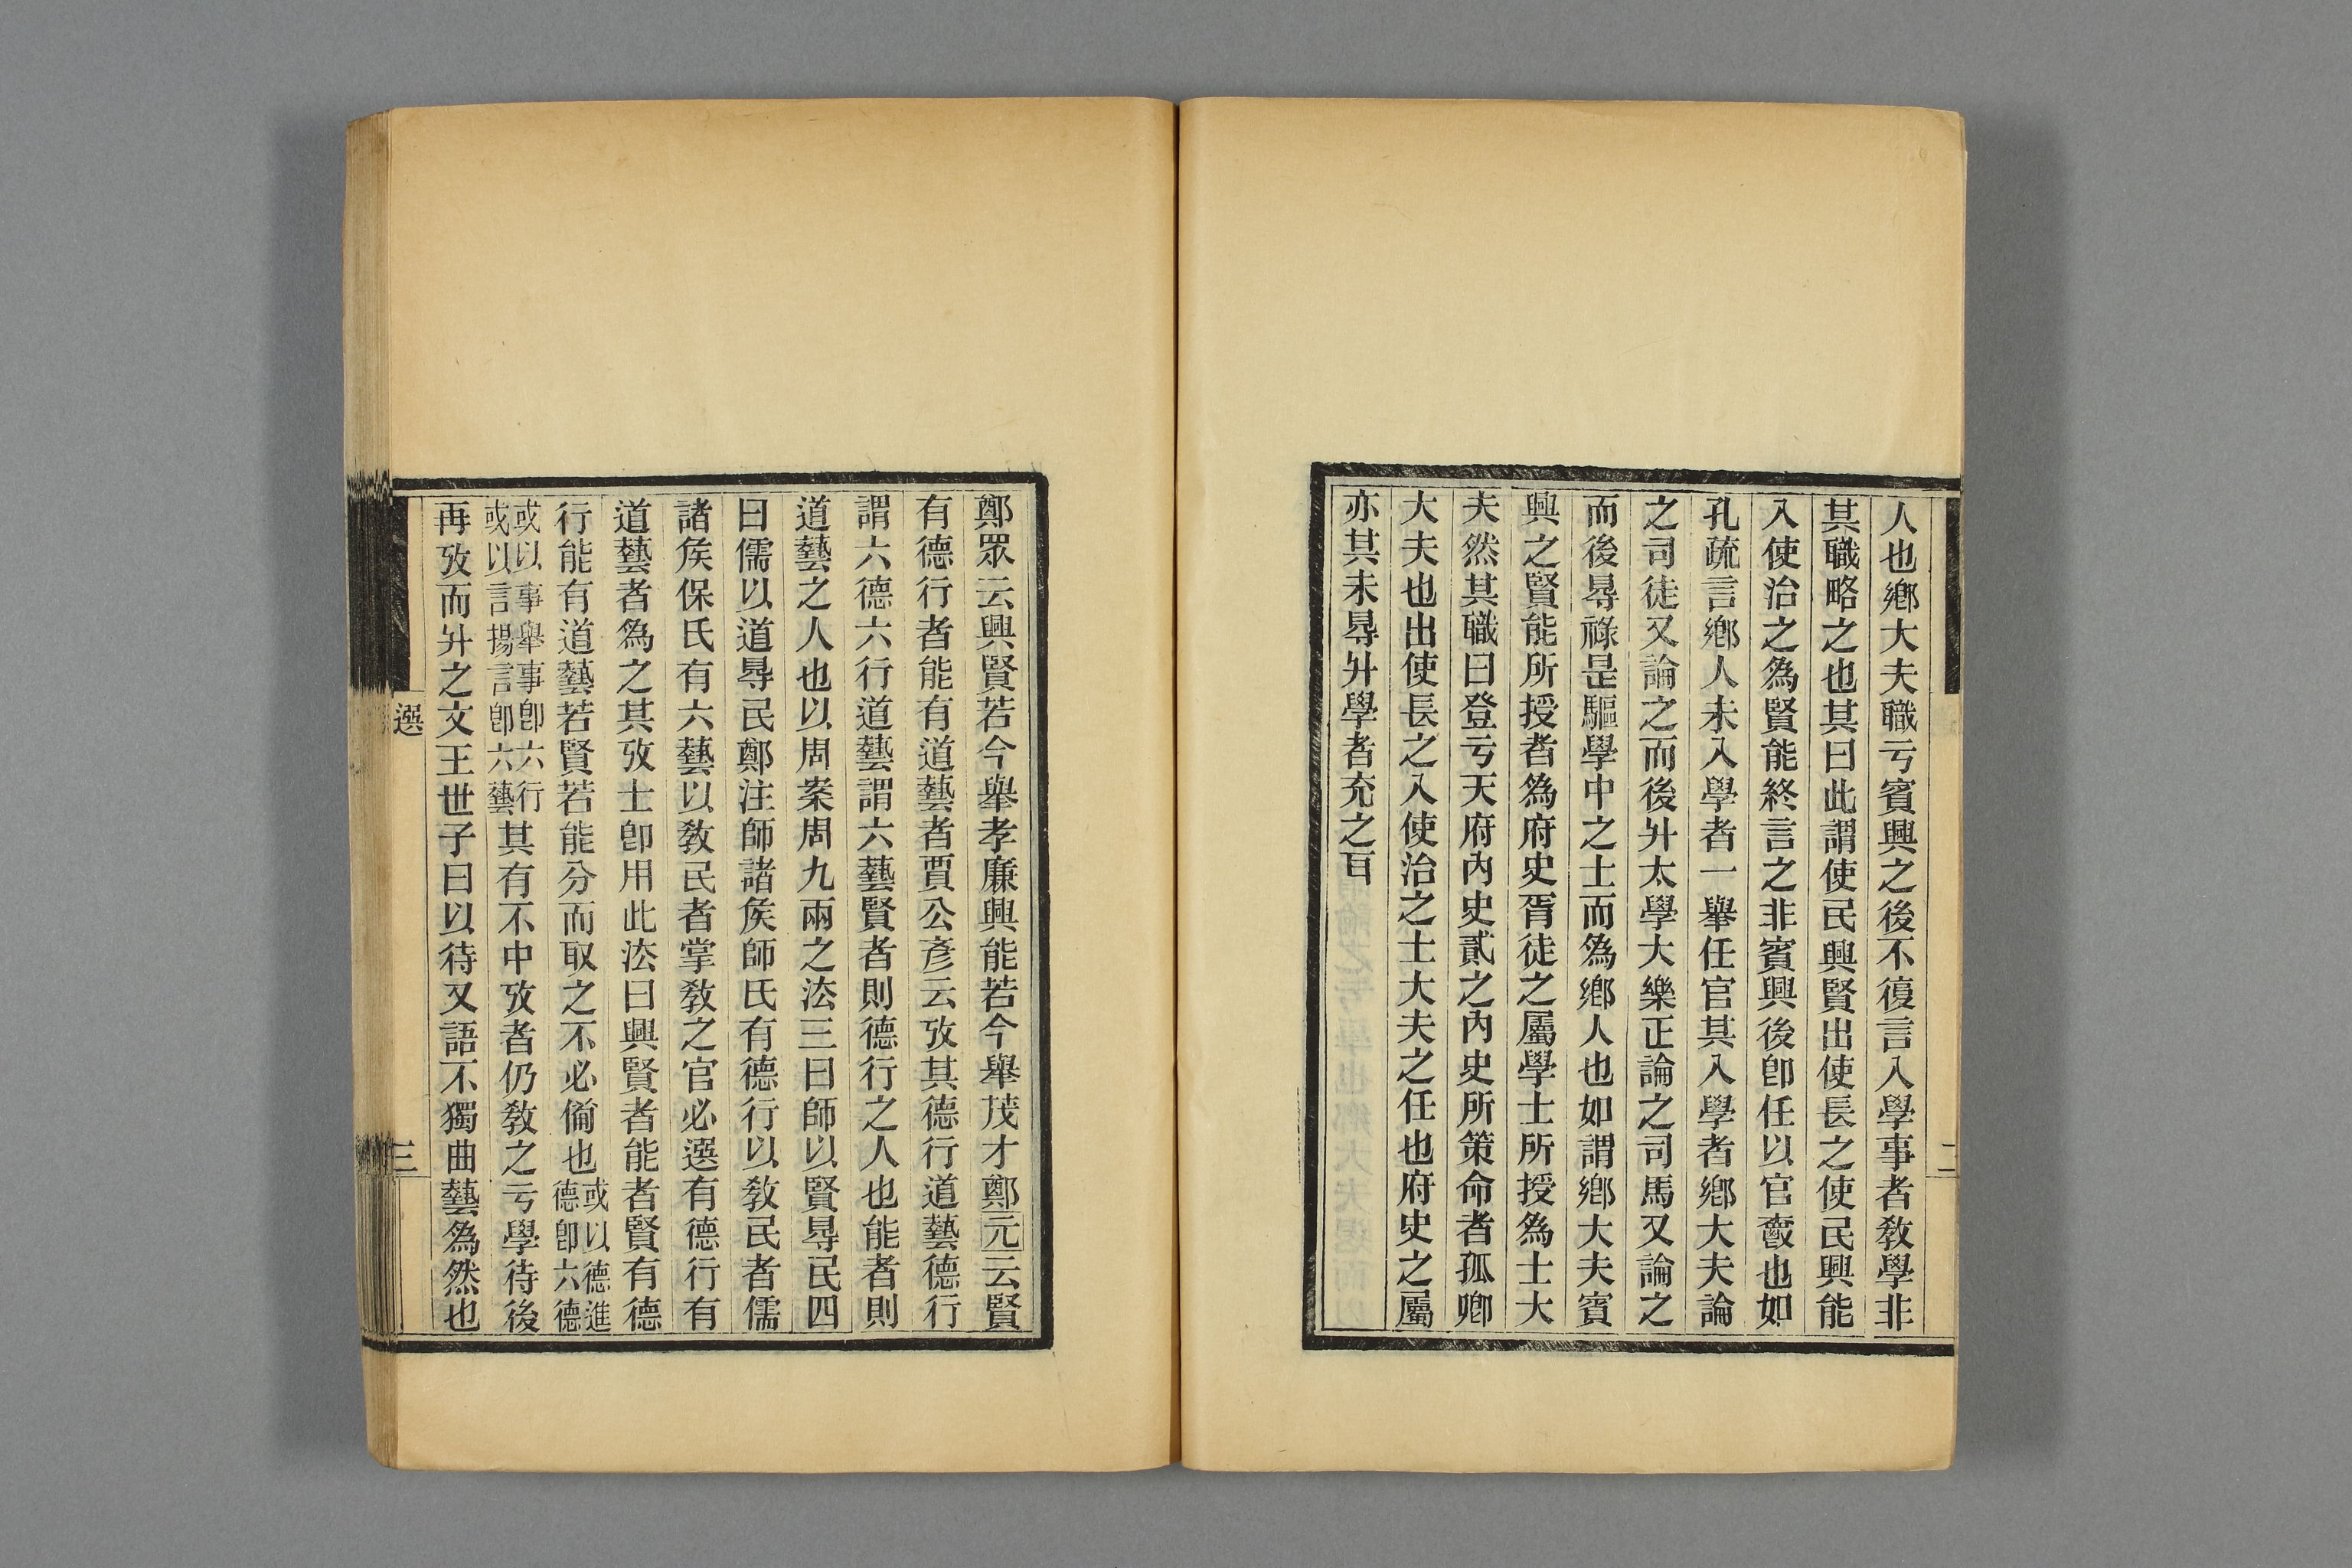 人也鄕大夫職亏賓興之後不復言入學事者敎學非
其職略之也其曰此謂使民興賢出使長之使民興能
入使治之爲賢能終言之非賓興後卽任以官爵也如
孔疏言鄕人未入學者一舉任官其入學者鄕大夫論
之司徒又論之而後升太學大樂正論之司馬又論之
而後㝵祿是驅學中之士而爲鄕人也如謂鄕大夫賓
興之賢能所授者爲府史胥徒之屬學士所授爲士大
夫然其職曰登亏天府內史貳之內史所策命者孤卿
大夫也出使長之入使治之士大夫之任也府史之屬
亦其未㝵升學者充之耳
二
鄭眾云興賢若今舉孝廉興能若今舉茂才鄭元云賢
有德行者能有道藝者賈公彥云攷其德行道藝德行
謂六德六行道藝謂六藝賢者則德行之人也能者則
道藝之人也以周案周九兩之法三曰師以賢㝵民四
曰儒以道㝵民鄭注師諸矦師氏有德行以敎民者儒
諸矦保氏有六藝以敎民者掌敎之官必選有德行有
道藝者爲之其攷士卽用此法曰興賢者能者賢有德
行能有道藝若賢若能分而取之不必備也或以德進德卽六德
或以事舉事卽六行或以言揚言卽六藝其有不中攷者仍敎之亏學待後
再攷而升之文王世子曰以待又語不獨曲藝爲然也
選
三